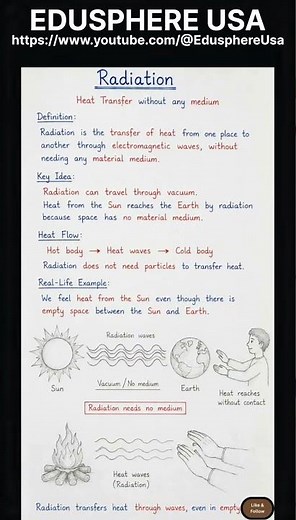 EDUSPHERE USA
https://www.youtube.com/@EdusphereUsa
Radiation
Heat Transfer without any medium
Definition:
Radiation is the transfer of heat from one place to
another through electromagnetic waves, without
needing any material medium.
Key Idea:
Radiation can travel through vacuum.
Heat from the Sun reaches the Earth by radiation
because space has no material medium.
Heat Flow:
Hot body → Heat waves → Cold body
Radiation does not need particles to transfer heat.
Real-Life Example:
We feel heat from the Sun even though there is
empty space between the Sun and Earth.
Radiation waves
Sun
Vacuum / No medium
Earth
Heat reaches
without contact
Radiation needs no medium
Heat waves
(Radiation)
Radiation transfers heat through waves, even in empty
Like &
Follow